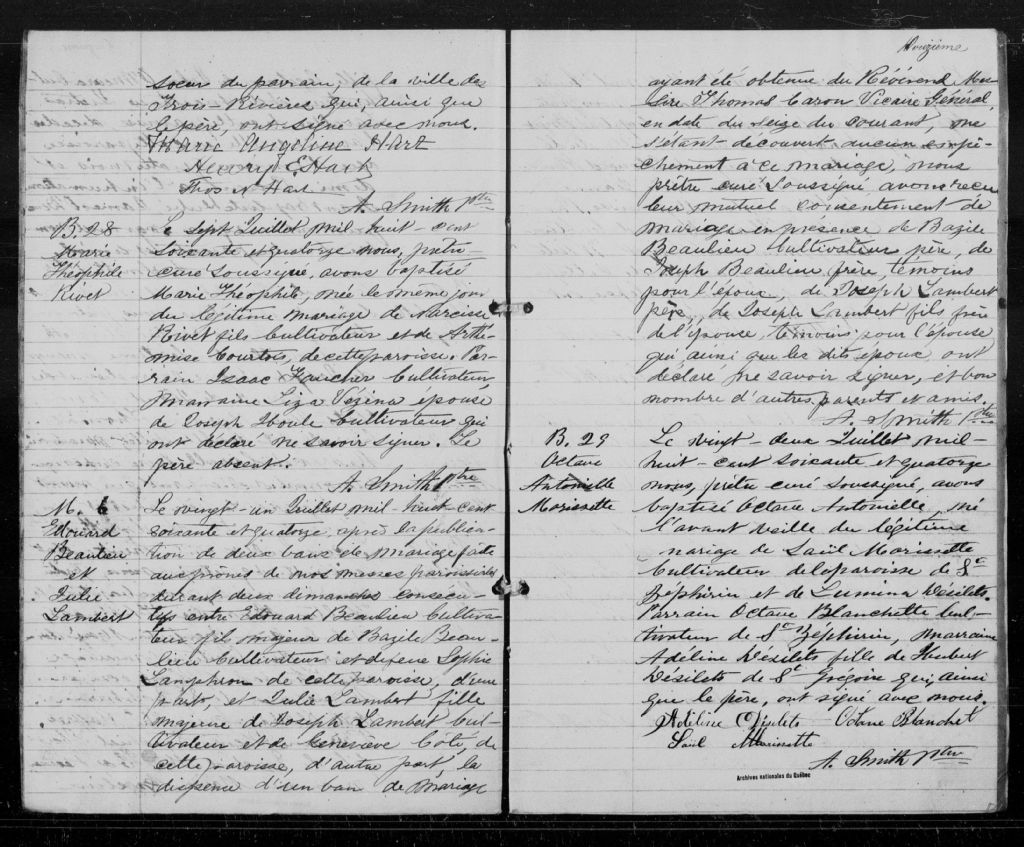 soeur du parrain, de la ville des
Trois-Rivières qui, ainsi que
le père, ont signé avec nous.
Marie Angeline Hart
Henry E Hart
Thos N Hart
A. Smith Ptre
B. 28
Marie
Théophile
Rivet
Le Sept Juillet mil huit cent
soixante et quatorze nous, prêtre
curé soussigné, avons baptisé
Marie Théophile, née le même jour
du légitime mariage de Narcisse
Rivet fils Cultivateur et de Arthé-
mise Courtois, de cette paroisse. Par-
rain Isaac Faucher Cultivateur,
Marraine Liza Vézina épouse
de Joseph Houle Cultivateur qui
ont déclaré ne savoir signer. Le
père absent.
A. Smith Ptre
M. 6
Edouard
Beaulieu
et
Julie
Lambert
Le vingt-un Juillet mil huit cent
soixante et quatorze, après la publica-
tion de deux bans de mariage faite
aux prônes de nos messes paroissiales
durant deux dimanches consécu-
tifs entre Edouard Beaulieu Cultiva-
teur, fils majeur de Bazile Beau-
lieu Cultivateur et de feue Sophie
de cette paroisse, d'une
part, et Julie Lambert fille
majeure de Joseph Lambert Cul-
tivateur et de Geneviève Côté, de
cette paroisse, d'autre part, la
dispense d'un ban de mariage
Douzième
ayant été obtenue du Révérend Mes-
sire Thomas Caron Vicaire Général,
en date du seize du courant, ne
s'étant découvert aucun empê-
chement à ce mariage, nous
prêtre curé soussigné avons reçu
leur mutuel consentement de
mariage en présence de Bazile
Beaulieu Cultivateur père, de
Joseph Beaulieu frère, témoins
pour l'époux, de Joseph Lambert
père, de Joseph Lambert fils frère
de l'épouse, témoins pour l'épouse
qui ainsi que les dits époux ont
déclaré ne savoir signer, et bon
nombre d'autres parents et amis.
A. Smith Ptre
B. 29
Octave
Antoinelle
Morissette
Le vingt-deux Juillet mil-
huit-cent soixante et quatorze
nous, prêtre curé soussigné, avons
baptisé Octave Antoinelle, né
l'avant veille du légitime
mariage de Saül Morissette
Cultivateur de la paroisse de St
Zéphirin et de Lumina Désilets.
Parrain Octave Blanchette Cul-
tivateur de St Zéphirin, marraine
Adéline Désilets fille de Hubert
Désilets de St Grégoire qui, ainsi
que le père, ont signé avec nous.
Adéline Désilets Octave Blanchet
Saül Morissette
A. Smith Ptre
Archives nationales du Québec